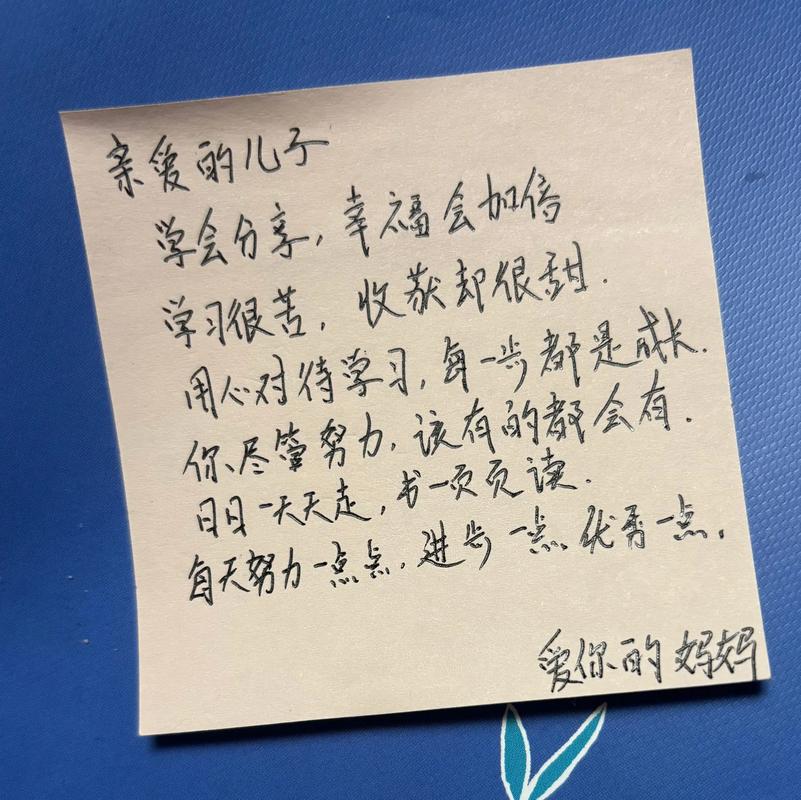 亲爱的儿子
学会分享，幸福会加倍
学习很苦，收获却很甜.
用心对待学习，每一步都是成长.
你尽管努力，该有的都会有.
日日一天天走，书一页页读.
每天努力一点点，进步一点优秀一点，
爱你的妈妈